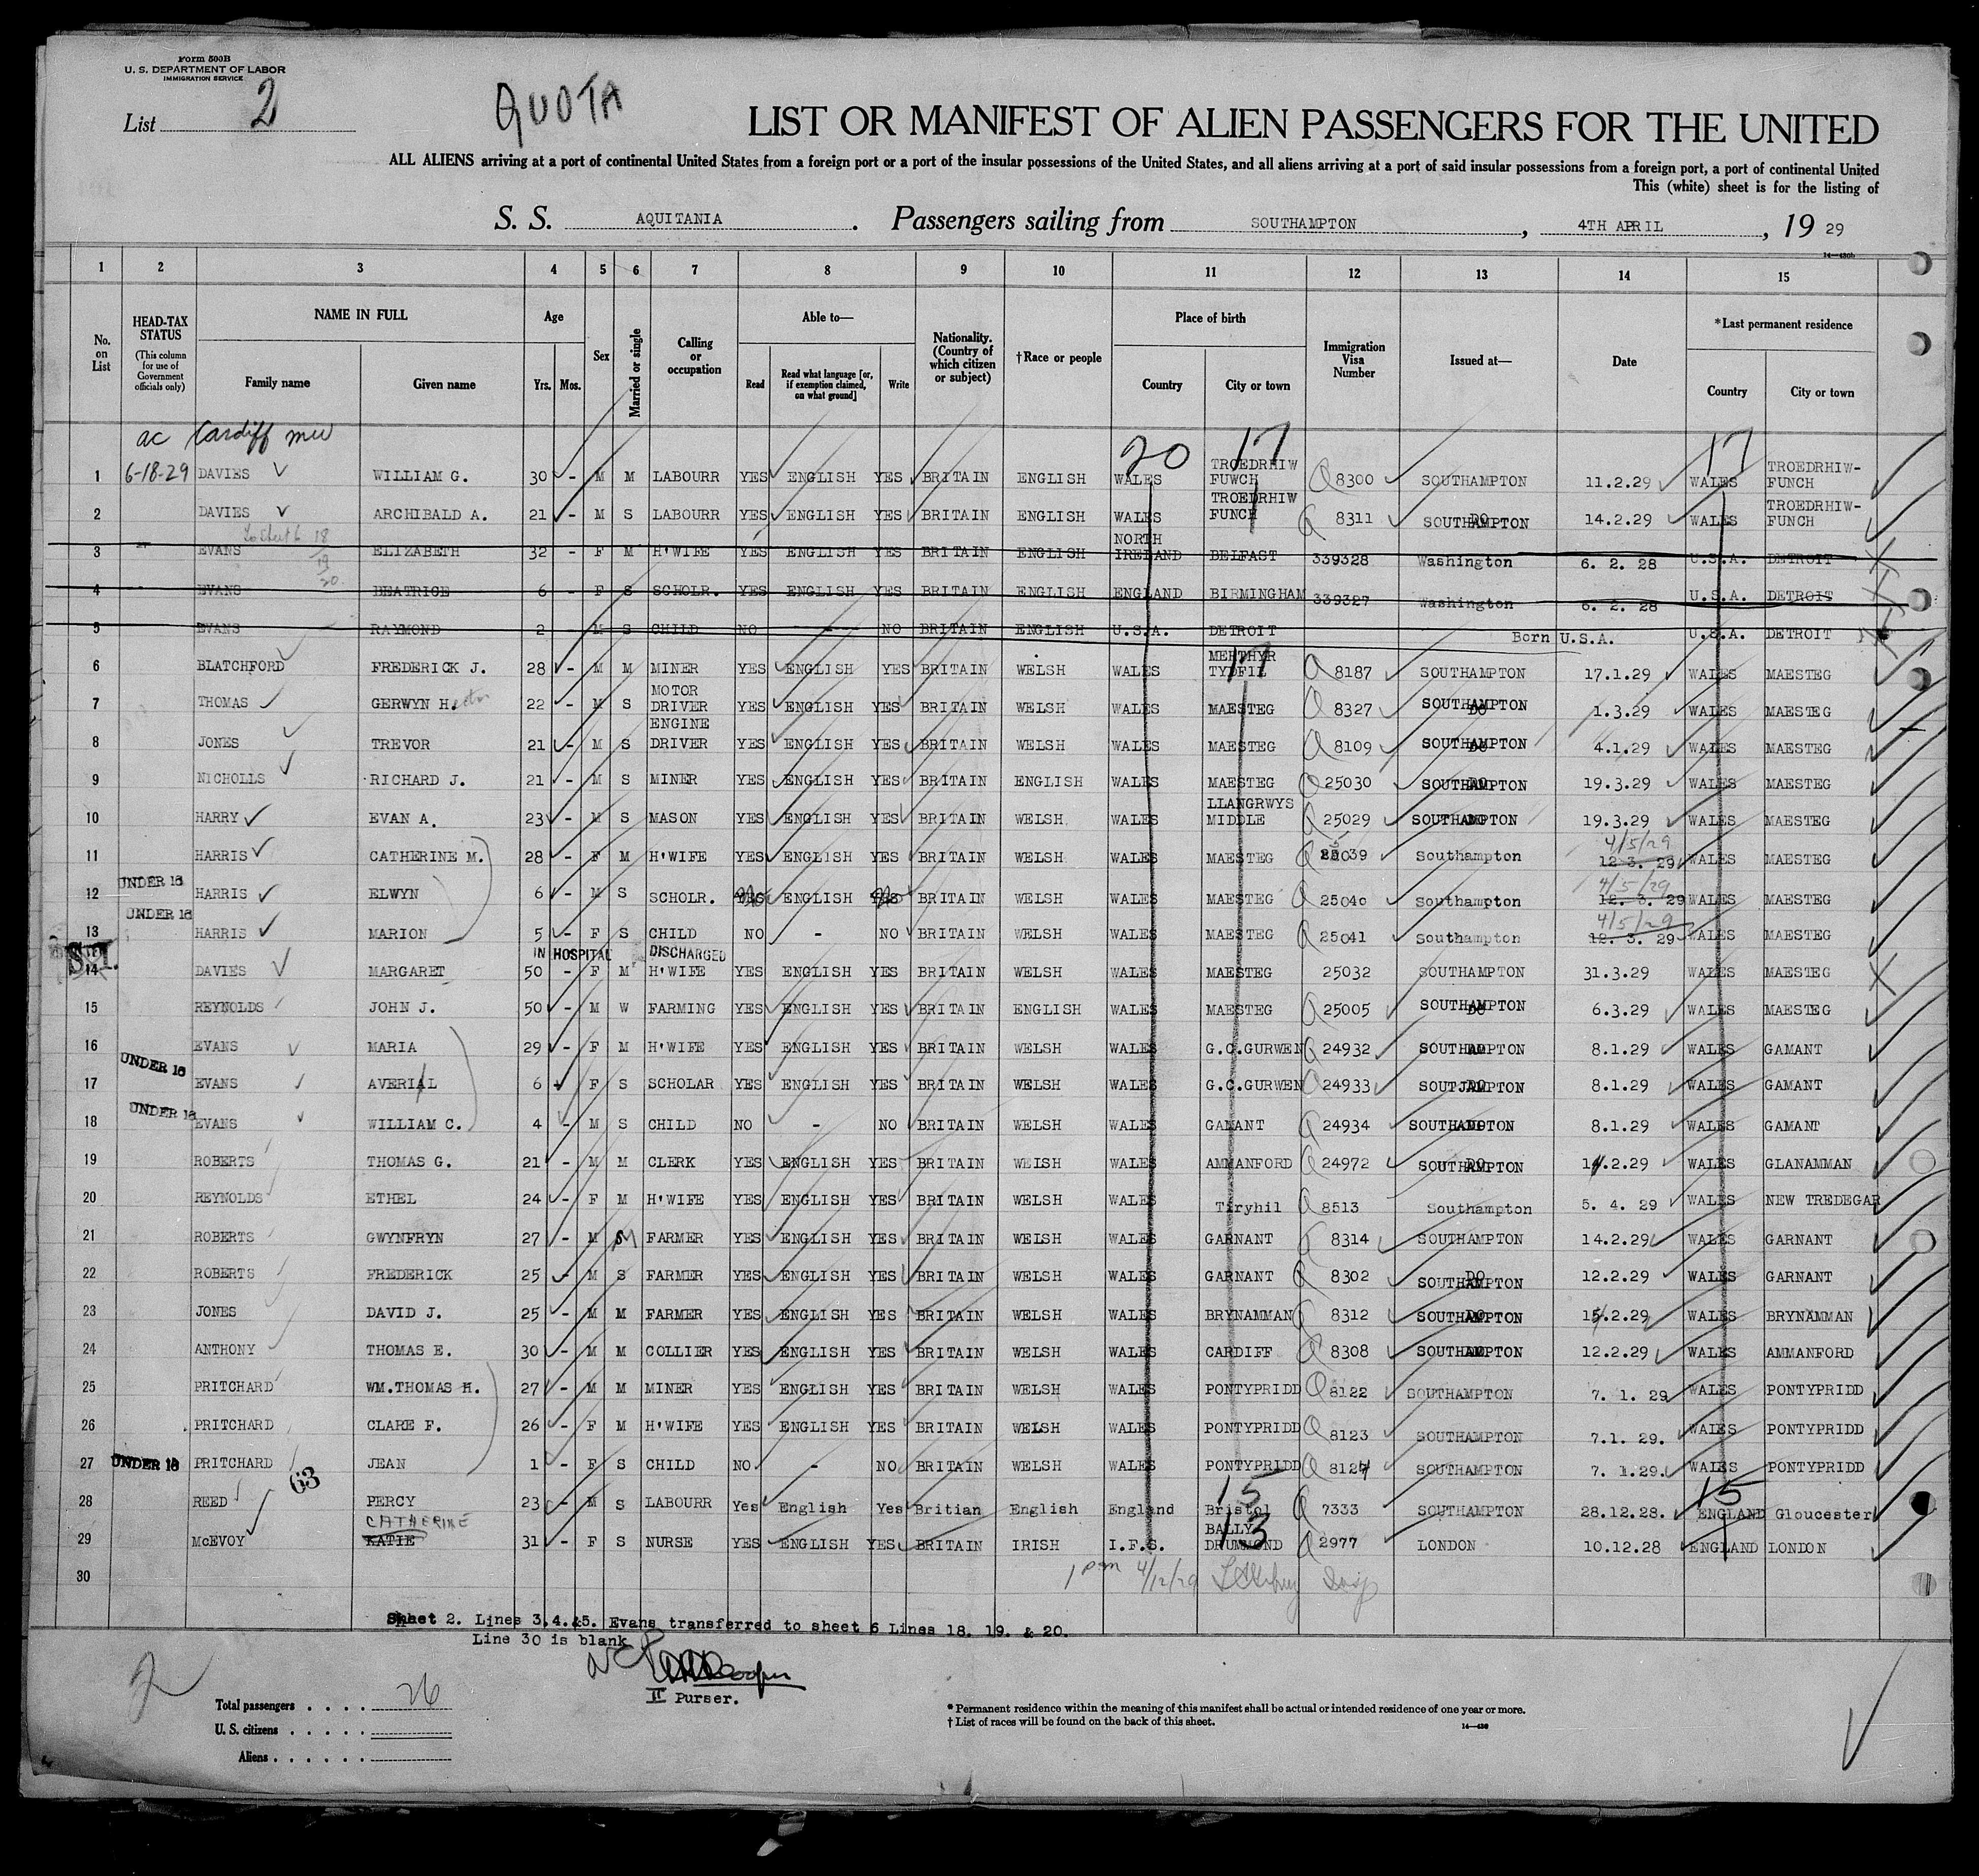 Form 500B
U. S. DEPARTMENT OF LABOR
IMMIGRATION SERVICE
List 2
QUOTA
LIST OR MANIFEST OF ALIEN PASSENGERS FOR THE UNITED
ALL ALIENS arriving at a port of continental United States from a foreign port or a port of the insular possessions of the United States, and all aliens arriving at a port of said insular possessions from a foreign port, a port of continental United
This (white) sheet is for the listing of
S. S. AQUITANIA . Passengers sailing from SOUTHAMPTON , 4TH APRIL , 19 29
1 2 3 4 5 6 7 8 9 10 11 12 13 14 15
No. on List HEAD-TAX STATUS (This column for use of Government officials only) NAME IN FULL Family name Given name Age Yrs. Mos. Sex Married or single Calling or occupation Able to— Read Read what language [or, if exemption claimed, on what ground] Write Nationality. (Country of which citizen or subject) †Race or people Place of birth Country City or town Immigration Visa Number Issued at— Date *Last permanent residence Country City or town
ac Cardiff 20 17 17
1 6-18-29 DAVIES WILLIAM G. 30 - M M LABOURR YES ENGLISH YES BRITAIN ENGLISH WALES TROEDRHIW FUWCH Q 8300 SOUTHAMPTON 11.2.29 WALES TROEDRHIW-FUNCH
2 DAVIES ARCHIBALD A. 21 - M S LABOURR YES ENGLISH YES BRITAIN ENGLISH WALES TROEDRHIW FUNCH Q 8311 SOUTHAMPTON 14.2.29 WALES TROEDRHIW-FUNCH
To sheet 6 18 19 20
3 EVANS ELIZABETH 32 - F M H'WIFE YES ENGLISH YES BRITAIN ENGLISH NORTH IRELAND BELFAST 339328 Washington 6. 2. 28 U.S.A. DETROIT
4 EVANS BEATRICE 6 - F S SCHOLR. YES ENGLISH YES BRITAIN ENGLISH ENGLAND BIRMINGHAM 339327 Washington 6. 2. 28 U.S.A. DETROIT
5 EVANS RAYMOND 2 - M S CHILD NO - NO BRITAIN ENGLISH U.S.A. DETROIT Born U.S.A. U.S.A. DETROIT
6 BLATCHFORD FREDERICK J. 28 - M M MINER YES ENGLISH YES BRITAIN WELSH WALES MERTHYR TYDFIL 17 Q 8187 SOUTHAMPTON 17.1.29 WALES MAESTEG
7 THOMAS GERWYN H. 22 - M S MOTOR DRIVER YES ENGLISH YES BRITAIN WELSH WALES MAESTEG Q 8327 SOUTHAMPTON 1.3.29 WALES MAESTEG
8 JONES TREVOR 21 - M S ENGINE DRIVER YES ENGLISH YES BRITAIN WELSH WALES MAESTEG Q 8109 SOUTHAMPTON 4.1.29 WALES MAESTEG
9 NICHOLLS RICHARD J. 21 - M S MINER YES ENGLISH YES BRITAIN ENGLISH WALES MAESTEG Q 25030 SOUTHAMPTON 19.3.29 WALES MAESTEG
10 HARRY EVAN A. 23 - M S MASON YES ENGLISH YES BRITAIN WELSH WALES LLANGRWYS MIDDLE Q 25029 SOUTHAMPTON 19.3.29 WALES MAESTEG
11 HARRIS CATHERINE M. 28 - F M H'WIFE YES ENGLISH YES BRITAIN WELSH WALES MAESTEG Q 25039 Southampton 12.3.29 4/5/29 WALES MAESTEG
12 UNDER 16 HARRIS ELWYN 6 - M S SCHOLR. YES ENGLISH YES BRITAIN WELSH WALES MAESTEG Q 25040 Southampton 12. 3. 29 4/5/29 WALES MAESTEG
13 UNDER 16 HARRIS MARION 5 - F S CHILD NO - NO BRITAIN WELSH WALES MAESTEG Q 25041 Southampton 12. 3. 29 4/5/29 WALES MAESTEG
IN HOSPITAL DISCHARGED
14 S.I. DAVIES MARGARET 50 - F M H'WIFE YES ENGLISH YES BRITAIN WELSH WALES MAESTEG 25032 SOUTHAMPTON 31.3.29 WALES MAESTEG
15 REYNOLDS JOHN J. 50 - M W FARMING YES ENGLISH YES BRITAIN ENGLISH WALES MAESTEG Q 25005 SOUTHAMPTON 6.3.29 WALES MAESTEG
16 EVANS MARIA 29 - F M H'WIFE YES ENGLISH YES BRITAIN WELSH WALES G.C.GURWEN Q 24932 SOUTHAMPTON 8.1.29 WALES GAMANT
17 UNDER 16 EVANS AVERIAL 6 - F S SCHOLAR YES ENGLISH YES BRITAIN WELSH WALES G.C.GURWEN Q 24933 SOUTJAMPTON 8.1.29 WALES GAMANT
18 UNDER 16 EVANS WILLIAM C. 4 - M S CHILD NO - NO BRITAIN WELSH WALES GAMANT Q 24934 SOUTHAMPTON 8.1.29 WALES GAMANT
19 ROBERTS THOMAS G. 21 - M M CLERK YES ENGLISH YES BRITAIN WELSH WALES AMMANFORD Q 24972 SOUTHAMPTON 14.2.29 WALES GLANAMMAN
20 REYNOLDS ETHEL 24 - F M H'WIFE YES ENGLISH YES BRITAIN WELSH WALES Tiryhil Q 8513 Southampton 5. 4. 29 WALES NEW TREDEGAR
21 ROBERTS GWYNFRYN 27 - M M FARMER YES ENGLISH YES BRITAIN WELSH WALES GARNANT Q 8314 SOUTHAMPTON 14.2.29 WALES GARNANT
22 ROBERTS FREDERICK 25 - M S FARMER YES ENGLISH YES BRITAIN WELSH WALES GARNANT Q 8302 DO SOUTHAMPTON 12.2.29 WALES GARNANT
23 JONES DAVID J. 25 - M M FARMER YES ENGLISH YES BRITAIN WELSH WALES BRYNAMMAN Q 8312 SOUTHAMPTON 15.2.29 WALES BRYNAMMAN
24 ANTHONY THOMAS E. 30 - M M COLLIER YES ENGLISH YES BRITAIN WELSH WALES CARDIFF Q 8308 SOUTHAMPTON 12.2.29 WALES AMMANFORD
25 PRITCHARD WM.THOMAS H. 27 - M M MINER YES ENGLISH YES BRITAIN WELSH WALES PONTYPRIDD Q 8122 SOUTHAMPTON 7. 1. 29 WALES PONTYPRIDD
26 PRITCHARD CLARE F. 26 - F M H'WIFE YES ENGLISH YES BRITAIN WELSH WALES PONTYPRIDD Q 8123 SOUTHAMPTON 7.1. 29. WALES PONTYPRIDD
27 UNDER 16 PRITCHARD JEAN 1 - F S CHILD NO - NO BRITAIN WELSH WALES PONTYPRIDD Q 8124 SOUTHAMPTON 7. 1.29. WALES PONTYPRIDD
63 15 15
28 REED PERCY 23 - M S LABOURR Yes English Yes Britian English England Bristol Q 7333 SOUTHAMPTON 28.12.28. ENGLAND Gloucester
29 McEVOY CATHERINE KATIE 31 - F S NURSE YES ENGLISH YES BRITAIN IRISH I.F.S. BALLY DRUMMOND 13 Q 2977 LONDON 10.12.28 ENGLAND LONDON
30 1 pm 4/12/29
Sheet 2. Lines 3.4.&5. Evans transferred to sheet 6 Lines 18. 19. & 20.
Line 30 is blank
Cooper
II Purser.
2
Total passengers . . . . 26
U. S. citizens . . . . .
Aliens . . . . . .
* Permanent residence within the meaning of this manifest shall be actual or intended residence of one year or more.
† List of races will be found on the back of this sheet.
14—430